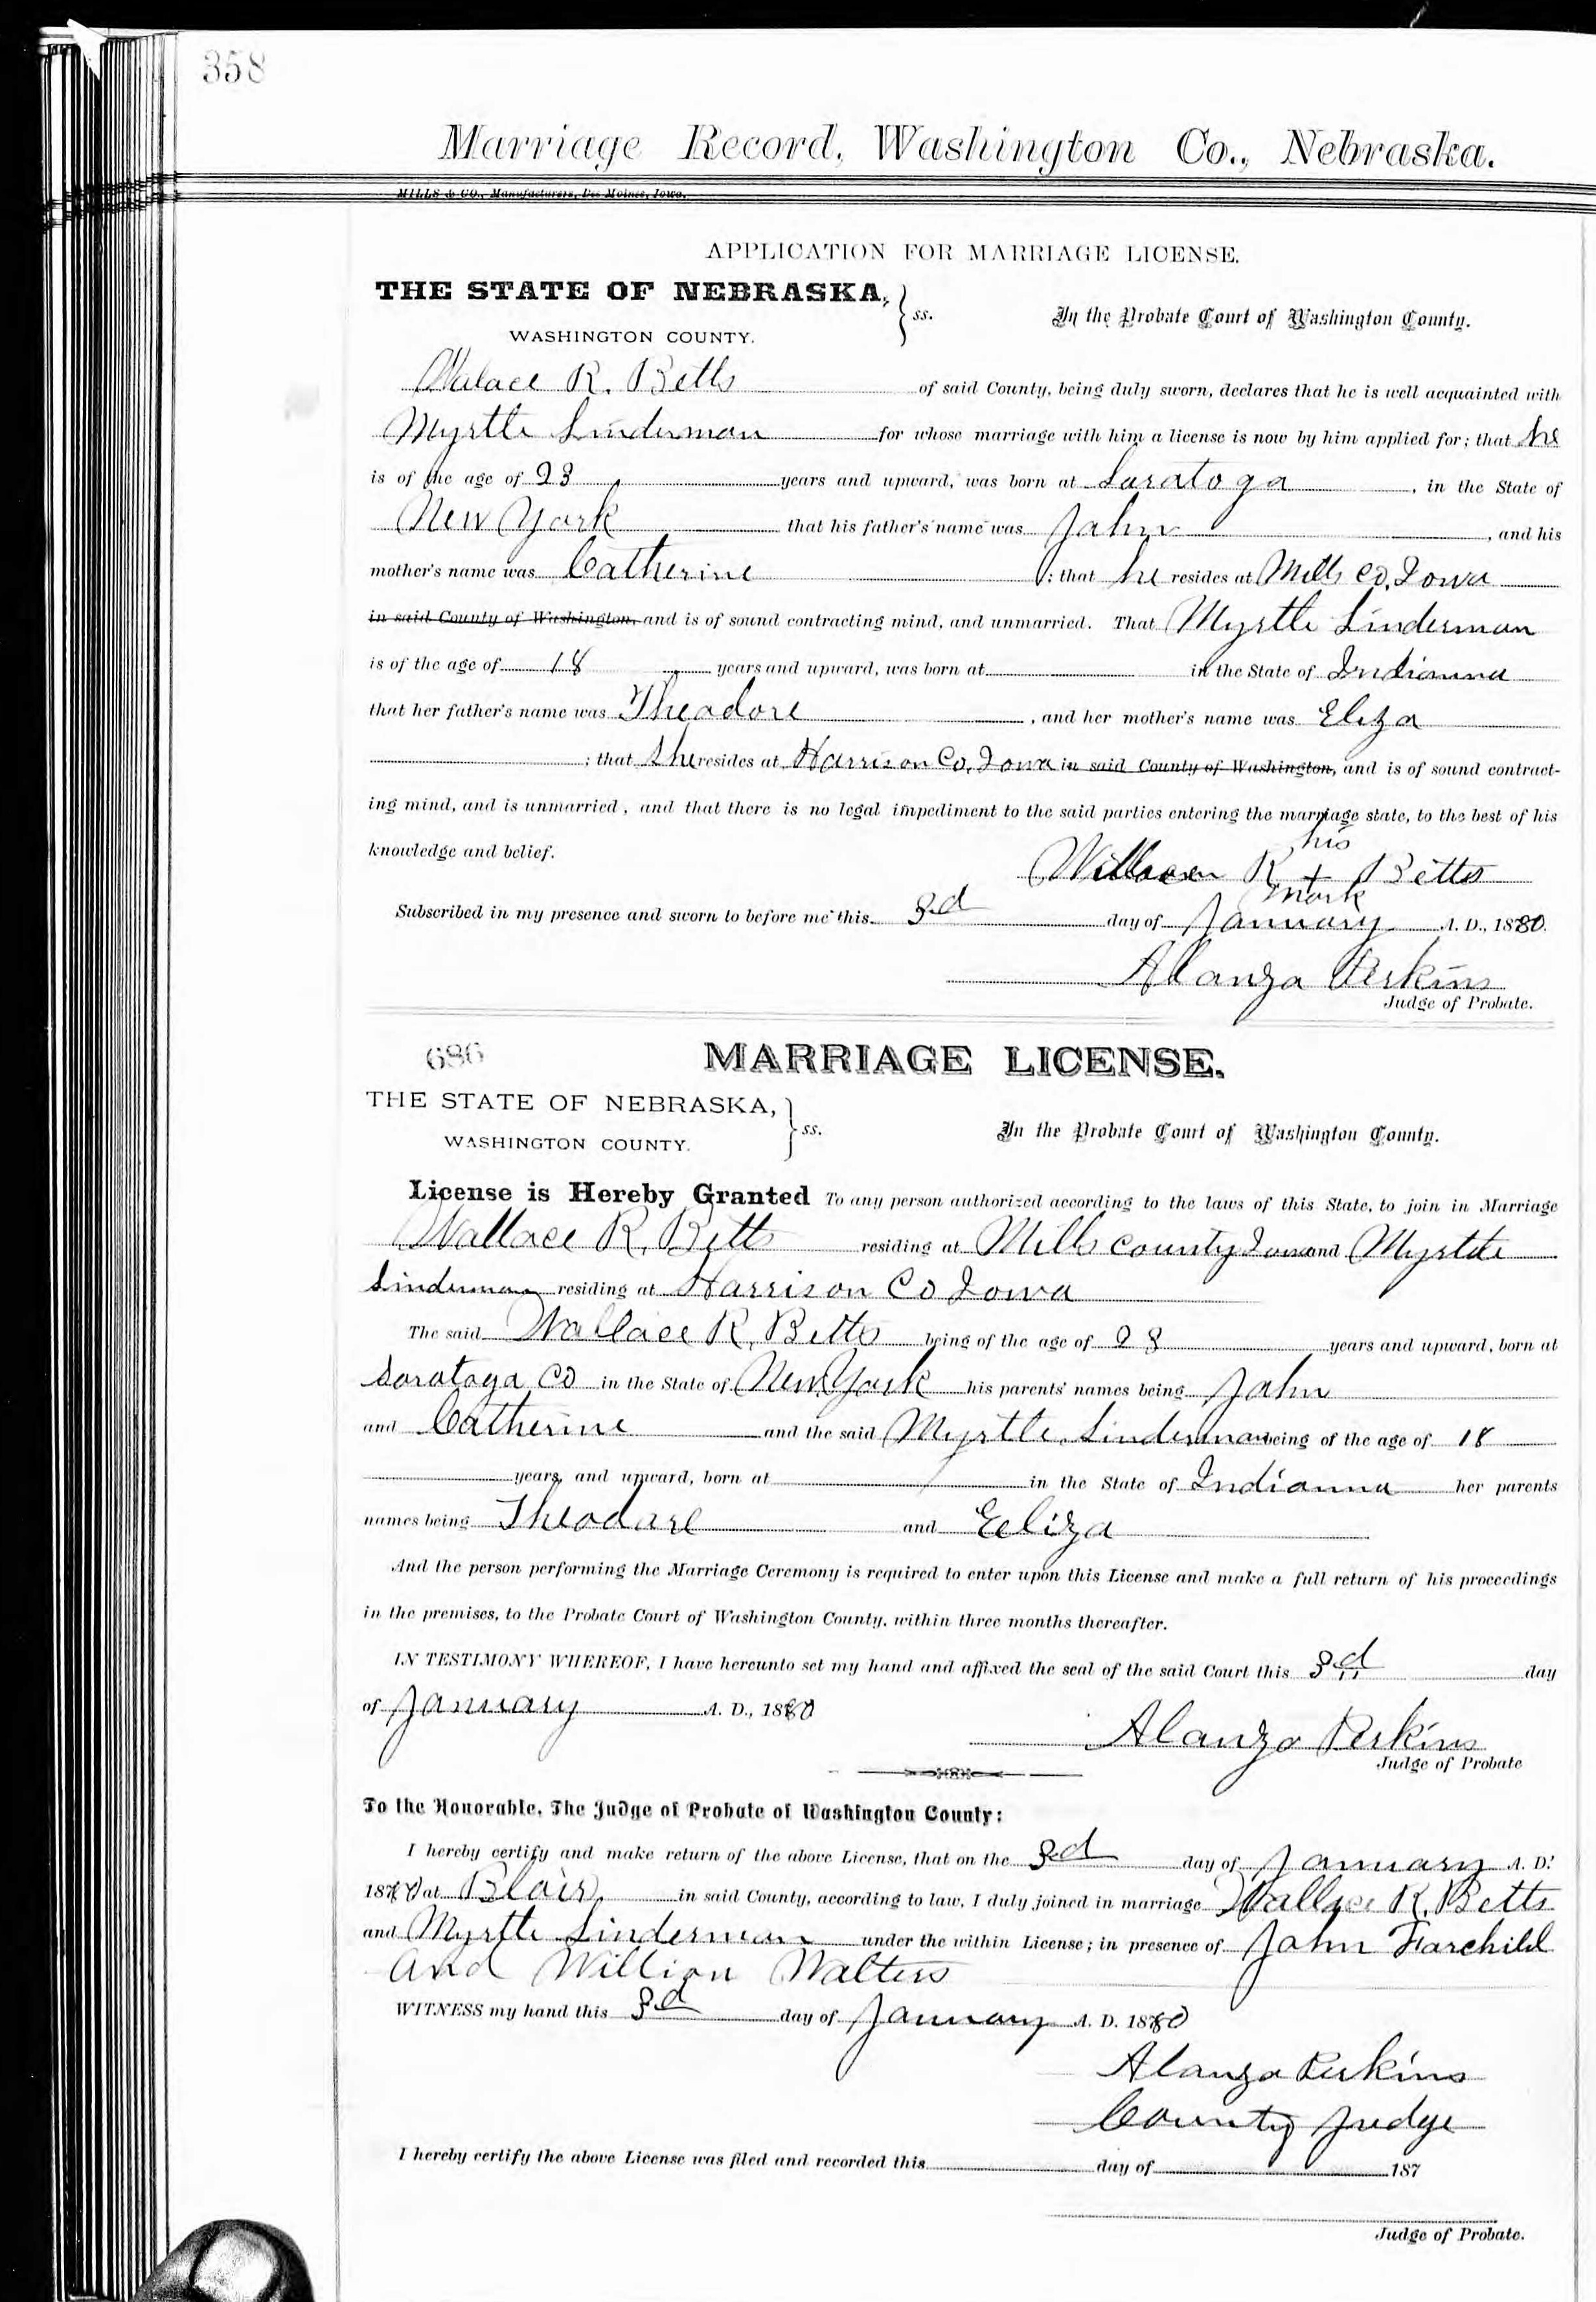 358
Marriage Record, Washington Co., Nebraska.
MILLS & CO., Manufacturers, Des Moines, Iowa.
APPLICATION FOR MARRIAGE LICENSE.
THE STATE OF NEBRASKA, ss. In the Probate Court of Washington County.
WASHINGTON COUNTY.
Walace R. Betts of said County, being duly sworn, declares that he is well acquainted with
Myrtle Linderman for whose marriage with him a license is now by him applied for; that he
is of the age of 23 years and upward, was born at Saratoga, in the State of
New York that his father's name was John, and his
mother's name was Catherine; that he resides at Mills Co, Iowa
in said County of Washington, and is of sound contracting mind, and unmarried. That Myrtle Linderman
is of the age of 18 years and upward, was born at in the State of Indianna
that her father's name was Theodore, and her mother's name was Eliza
; that she resides at Harrison Co, Iowa in said County of Washington, and is of sound contract-
ing mind, and is unmarried, and that there is no legal impediment to the said parties entering the marriage state, to the best of his
knowledge and belief.
his
R + Betts
mark
Subscribed in my presence and sworn to before me this 3d day of January A. D., 1880.
Alanzo Perkins
Judge of Probate.
686 MARRIAGE LICENSE.
THE STATE OF NEBRASKA, ss. In the Probate Court of Washington County.
WASHINGTON COUNTY.
License is Hereby Granted To any person authorized according to the laws of this State, to join in Marriage
Wallace R. Betts residing at Mills county Iowa and Myrtle
Linderman residing at Harrison Co Iowa
The said Wallace R. Betts being of the age of 23 years and upward, born at
Saratoga Co in the State of New York his parents' names being John
and Catherine and the said Myrtle Linderman being of the age of 18
years, and upward, born at in the State of Indianna her parents
names being Theodore and Eeliza
And the person performing the Marriage Ceremony is required to enter upon this License and make a full return of his proceedings
in the premises, to the Probate Court of Washington County, within three months thereafter.
IN TESTIMONY WHEREOF, I have hereunto set my hand and affixed the seal of the said Court this 3d day
of January A. D., 1880
Alanzo Perkins
Judge of Probate
To the Honorable, The Judge of Probate of Washington County:
I hereby certify and make return of the above License, that on the 3d day of January A. D.
1880 at Blair, in said County, according to law, I duly joined in marriage Wallace R. Betts
and Myrtle Linderman under the within License; in presence of John Farchild
and Willion Walters
WITNESS my hand this 3d day of January A. D. 1880
Alanzo Perkins
County Judge
I hereby certify the above License was filed and recorded this day of 187
Judge of Probate.